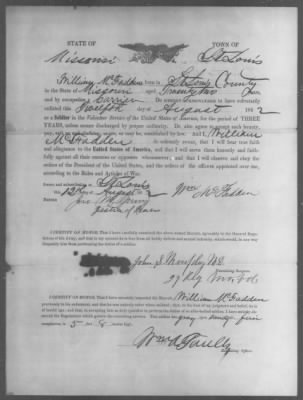 STATE OF TOWN OF
Missouri St Louis
I, William McFadden born in St Louis County
in the State of Missouri aged Twenty two years,
and by occupation a Carrier Do HEREBY ACKNOWLEDGE to have voluntarily
enlisted this Twelfth day of August 186 2
as a Soldier in the Volunteer Service of the United States of America, for the period of THREE
YEARS, unless sooner discharged by proper authority: Do also agree to accept such bounty,
pay, rations, and clothing, as are, or may be, established by law. And I, William
McFadden do solemnly swear, that I will bear true faith
and allegiance to the United States of America, and that I will serve them honestly and faith-
fully against all their enemies or opposers whomsoever; and that I will observe and obey the
orders of the President of the United States, and the orders of the officers appointed over me,
according to the Rules and Articles of War.
Sworn and subscribed to, at St Louis
this 12th day of August 186 2 Wm McFadden
BEFORE
Justice of Peace
I CERTIFY ON HONOR, That I have carefully examined the above named Recruit, agreeably to the General Regu-
lations of the Army, and that in my opinion he is free from all bodily defects and mental infirmity, which would, in any way,
disqualify him from performing the duties of a soldier.
John
Examining Surgeon.
I CERTIFY ON HONOR, That I have minutely inspected the Recruit, William McFadden
previously to his enlistment, and that he was entirely sober when enlisted; that, to the best of my judgment and belief, he is
of lawful age; and that, in accepting him as duly qualified to perform the duties of an able-bodied soldier, I have strictly ob-
served the Regulations which govern the recruiting service. This soldier has gray eyes, hair,
complexion, is 5 feet 8 inches high.
Recruiting Officer.